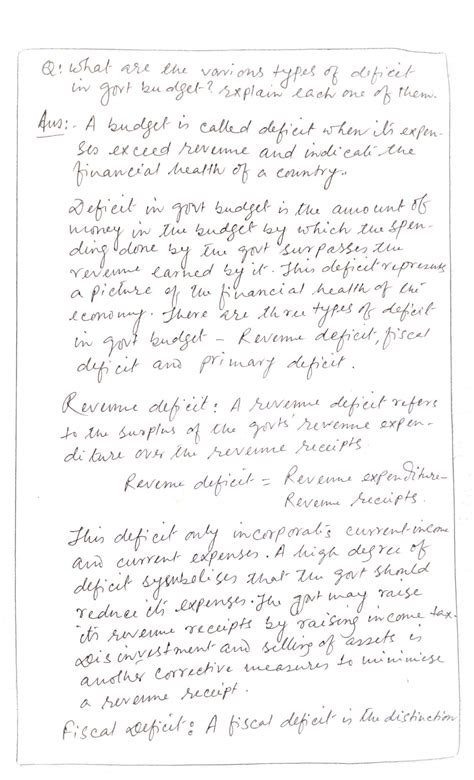 Q: What are the various types of deficit
in govt budget? Explain each one of them.
Ans:- A budget is called deficit when it's expen-
ses exceed revenue and indicate the
financial health of a country..
Deficit in govt budget is the amount of
money in the budget by which the spen-
ding done by the govt surpasses the
revenue earned by it. This deficit represents
a picture of the financial health of the
economy. There are three types of deficit
in govt budget - Revenue deficit, fiscal
deficit and primary deficit.
Revenue deficit: A revenue deficit refers
to the surplus of the govts' revenue expen-
diture over the revenue receipts
Revenue deficit = Revenue expenditure-
Revenue receipts.
This deficit only incorporates current income
and current expenses. A high degree of
deficit symbolises that the govt should
reduce its expenses. The govt may raise
its revenue receipts by raising income tax.
Disinvestment and selling of assets is
another corrective measures to minimise
a revenue receipt.
Fiscal Deficit: A fiscal deficit is the distinction